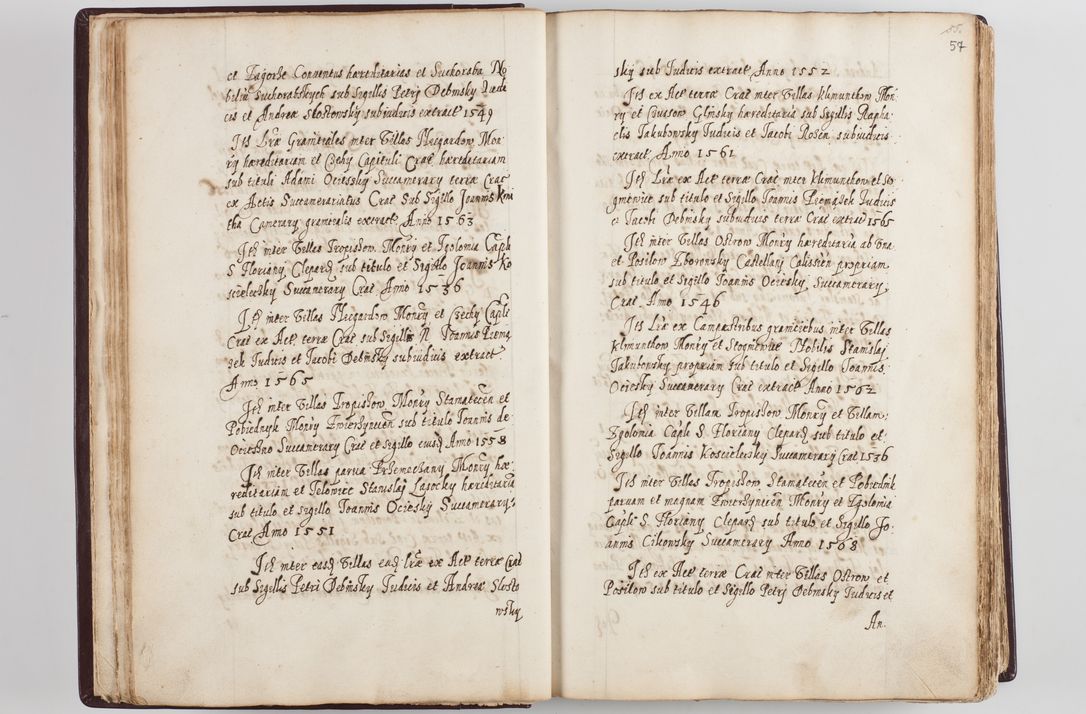 et Zagorze Conventus hæreditarias et Suchoraba No
bilium Suchorabskych sub Sigillis Petrj Debinsky Iudi
cis et Andreæ Slostowsky subiudicis extract 1549
Itē Lr̃æ Granitiales inter Villas Niegardow Mon
rÿ hæreditariam et Czechy Capituli Crac hæreditariam
sub tituli Adami Ociessky Succamerary terræ Crac
ex Actis Succamerariatus Crac Sub Sigillo Joannis Kmi
tha Camerary granitialis extract Anno 1563
Itē inter Villas Tropiszow Monrÿ et Igolomia Capli
S Floriany Clepard sub titulo et Sigillo Joannis Ko
scielecky Succamerary Crac Anno 1536
Itē inter Villas Niegardow Monrÿ et Czechy Capli
Crac ex Act terræ Crac sub Sigillis N Ioannis Pienią
zek Iudicis et Iacobi Debinsky subiudicis extract
Anno 1565
Itē inter Villas Tropiszow Monrÿ Stamatecen et
Pobiednyk Monrÿ Zwierzyniecen sub titulo Ioannis de
Ociesno Succamerary Crac et Sigillo eiusd Anno 1558
Itē inter Villas parua Przemeczany Monrÿ hæ
reditariam et Stanislaj Lasocky hæreditaria
sub titulo et sigillo Ioannis Ociesky Succamerary
Crac Anno 1551
Itē inter easd Villas ead Lr̃æ ex Act terræ Crac
sub Sigillis Petri Debinsky Iudicis et Andreæ Slosto
wsky
55.
57
sky sub Iudicis extract Anno 1552
Itē ex Act terræ Crac inter Villas Klimunthow Mon
rÿ et Glinsky hæreditaria sub Sigillis Rapha
elis Iakubowsky Iudicis et Iacobi Rosen subiudicis
extract Anno 1561
Itē Lr̃æ ex Act terræ Crac inter Klimunthow et Sto
gniewice sub titulo et Sigillo Ioannis Pieniązek Iudicis
et Iacobi Debinsky subiudicis terræ Crac extract 1565
Itē inter Villas Ostrow Monrÿ hæreditaria ab Vna
et Posilow Zborowsky Castellanj Calissien propriam
sub titulo et Sigillo Ioannis Ociesky, Succamerary,
Crac Anno 1546
Itē Lr̃æ ex Campestribus granitiebus inter Villas
Klimunthow Monrÿ et Stogniewice Nobilis Stanislaj
Iakubowsky propriam sub titulo et Sigillo Ioannis
Ociesky Succamerary Crac extract Anno 1562
Itē inter Villam Tropiszow Monrÿ et Villam,
Igolomia Capli S. Floriany Clepard sub titulo et
Sigillo Ioannis Koscielecky Succamerary Crac 1536
Itē inter Villas Tropiszow, Stamatecen et Pobiednik
paruam et magnam Zwierzyniecen Monrÿ et Igolomia
Capli S. Floriany Clepard sub titulo et Sigillo Jo
annis Cikowsky Succamerary Anno 1568
Itē ex Act terræ Crac inter Villas Ostrow et
Posilow sub titulo et Sigillo Petrj Debinskj Iudicis et
An.